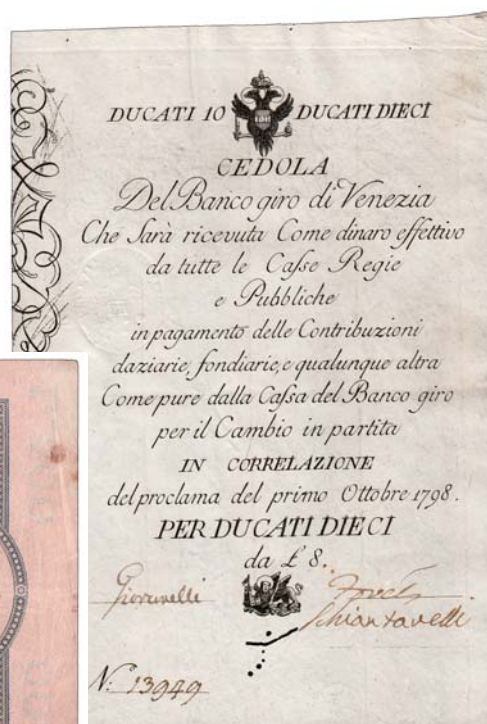 DUCATI 10 DUCATI DIECI
CEDOLA
Del Banco giro di Venezia
Che Sarà ricevuta Come dinaro effettivo
da tutte le Casse Regie
e Pubbliche
in pagamento delle Contribuzioni
daziarie, fondiarie, e qualunque altra
Come pure dalla Cassa del Banco giro
per il Cambio in partita
IN CORRELAZIONE
del proclama del primo Ottobre 1798.
PER DUCATI DIECI
da £ 8.
Giovanelli
N: 13949